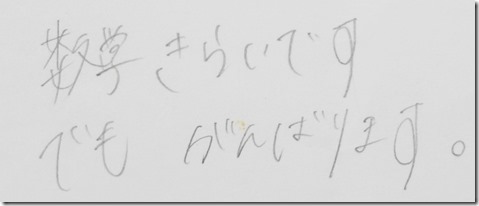 数学 きらいです
でも がんばります。